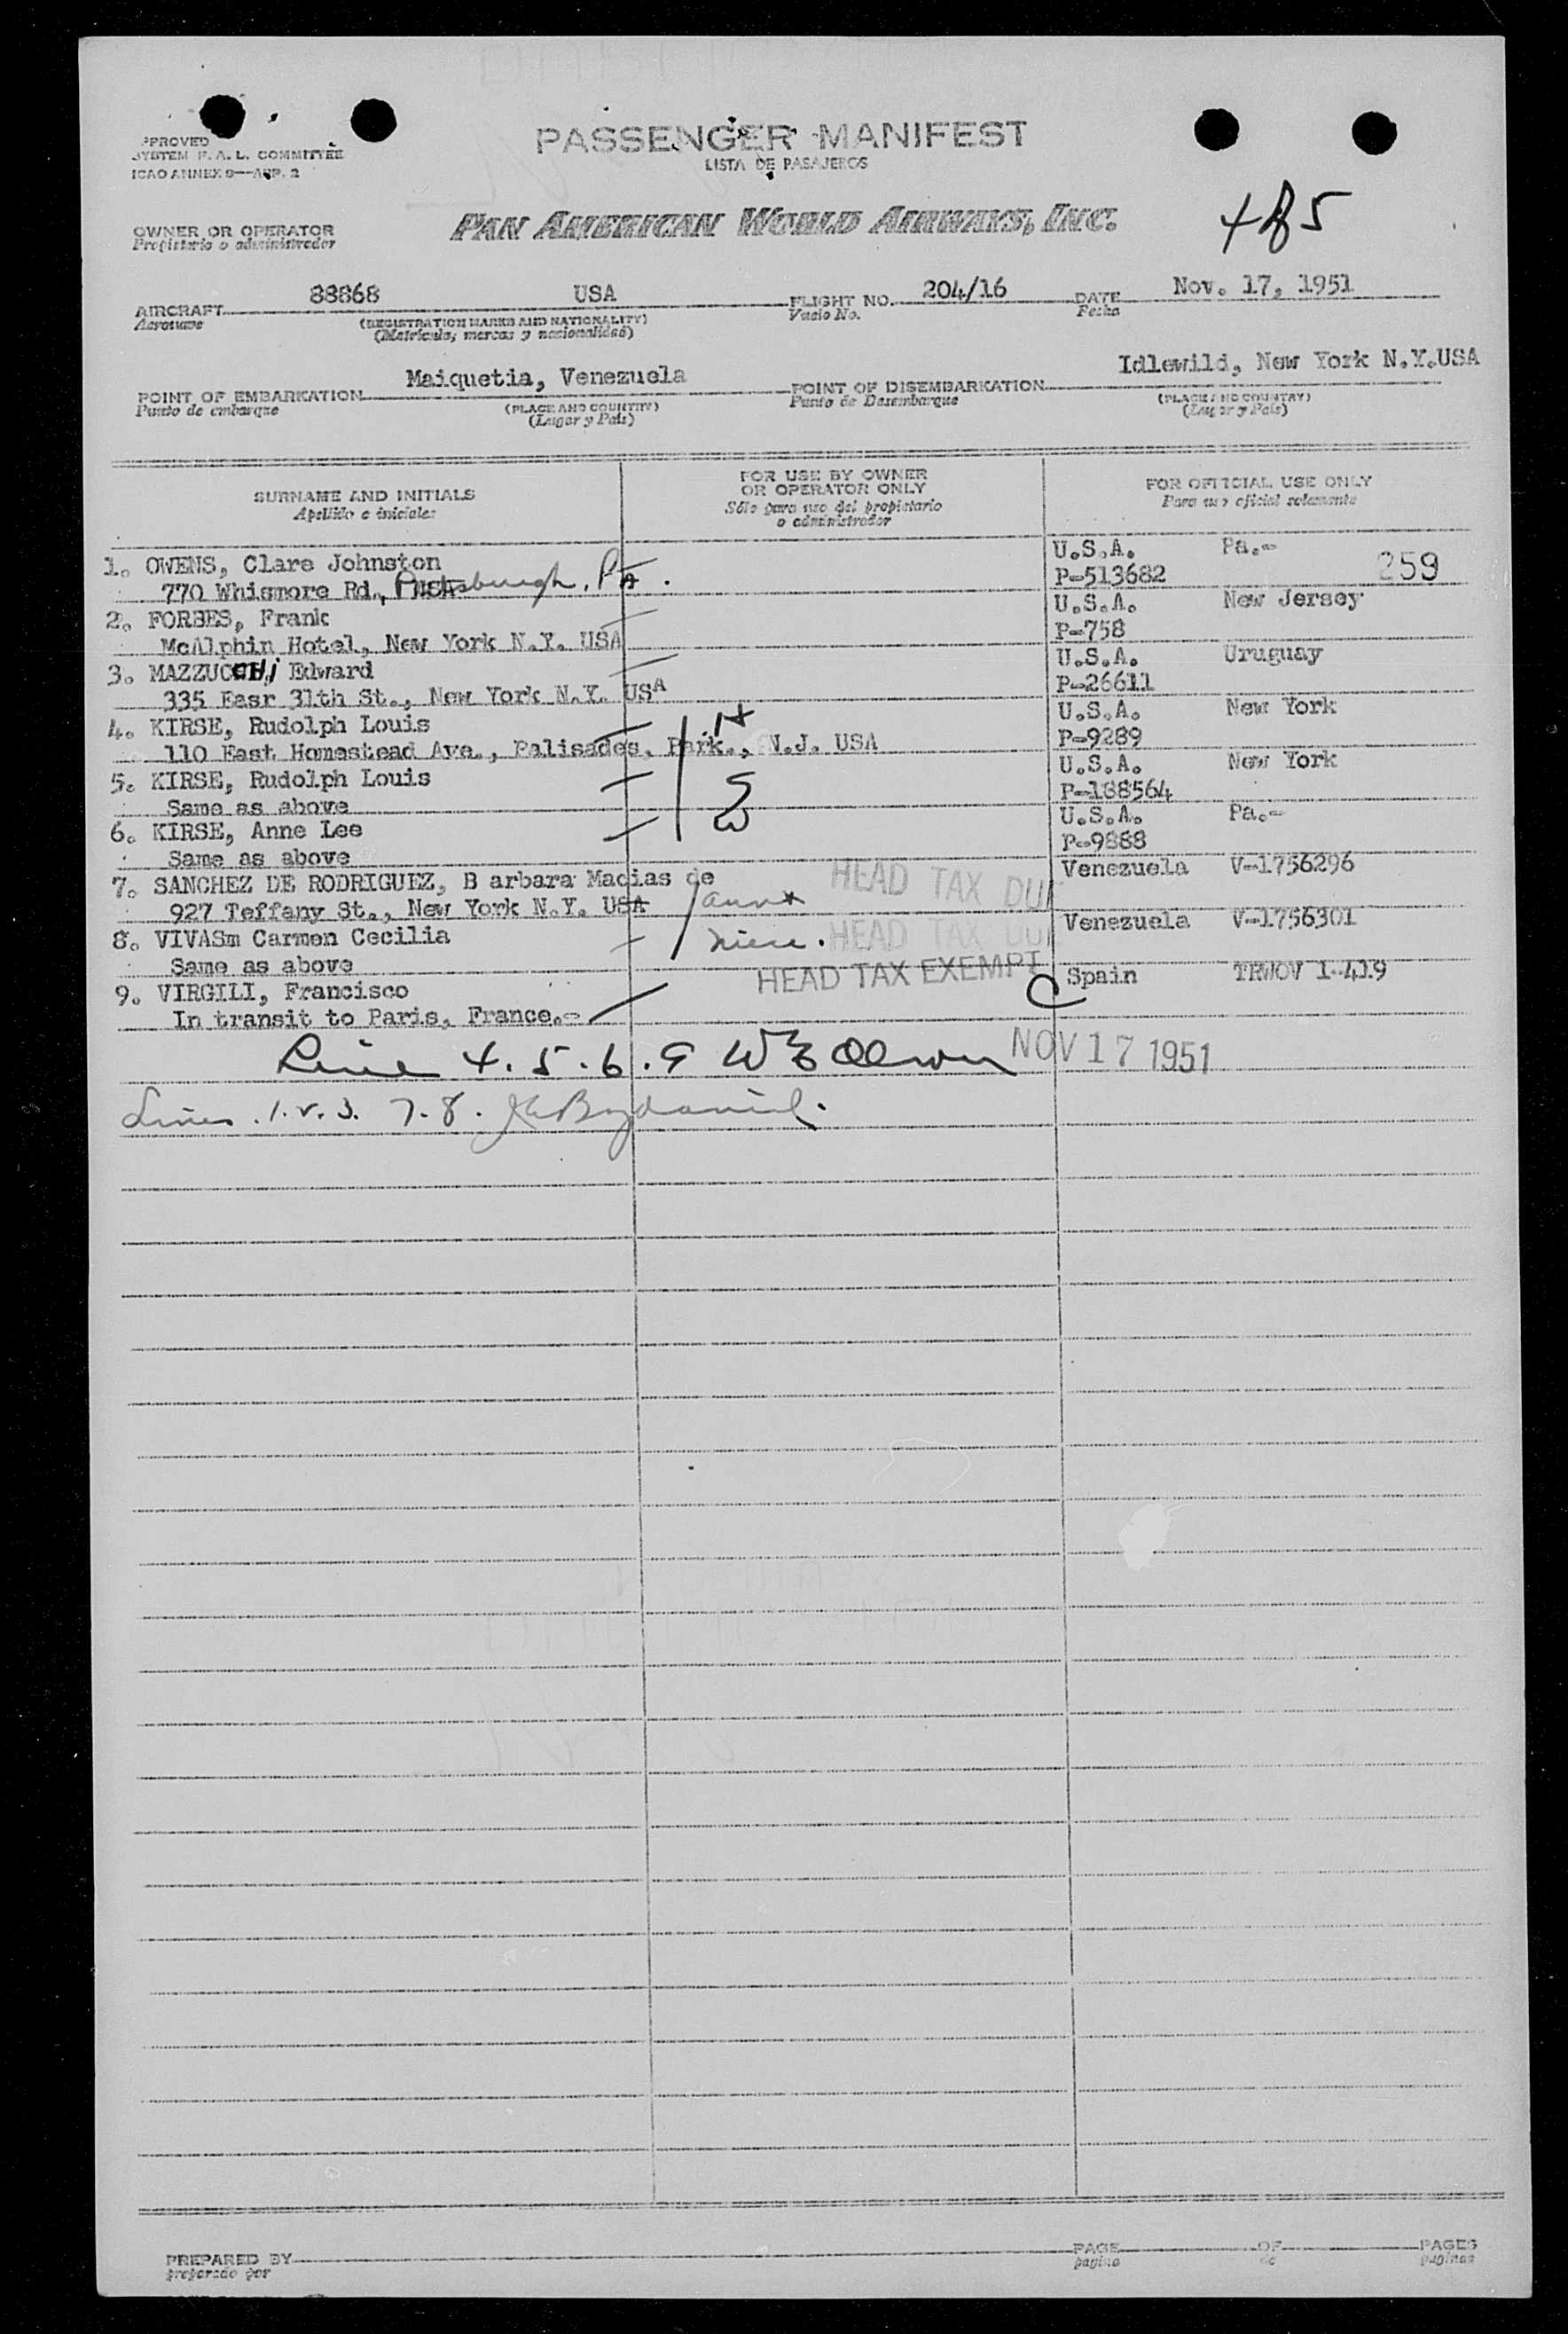 PASSENGER MANIFEST
LISTA DE PASAJEROS
PPROVED
SYSTEM F. A. L. COMMITTEE
ICAO ANNEX 9—APP. 2
OWNER OR OPERATOR
Propietario o administrador
PAN AMERICAN WORLD AIRWAYS, INC.
485
AIRCRAFT 88868 USA FLIGHT NO. 204/16 DATE Nov. 17, 1951
Aeronave (REGISTRATION MARKS AND NATIONALITY) Vuelo No. Fecha
(Matrícula, marcas y nacionalidad)
POINT OF EMBARKATION Maiquetia, Venezuela POINT OF DISEMBARKATION Idlewild, New York N.Y.USA
Punto de embarque (PLACE AND COUNTRY) Punto de Desembarque (PLACE AND COUNTRY)
(Lugar y País) (Lugar y País)
SURNAME AND INITIALS
Apellido e iniciales
FOR USE BY OWNER
OR OPERATOR ONLY
Sólo para uso del propietario
o administrador
FOR OFFICIAL USE ONLY
Para uso oficial solamente
1. OWENS, Clare Johnston U.S.A. Pa.-
770 Whismore Rd., Pittsburgh, Pa. P-513682 259
2. FORBES, Frank U.S.A. New Jersey
McAlphin Hotel, New York N.Y. USA P-758
3. MAZZUCCHi Edward U.S.A. Uruguay
335 Easr 31th St., New York N.Y. USA P-26611
4. KIRSE, Rudolph Louis U.S.A. New York
110 East Homestead Ave., Palisades, Park., N.J. USA P-9289
5. KIRSE, Rudolph Louis U.S.A. New York
Same as above P-188564
6. KIRSE, Anne Lee U.S.A. Pa.-
Same as above P-9888
7. SANCHEZ DE RODRIGUEZ, B arbara Macias de HEAD TAX DU Venezuela V-1756296
927 Teffany St., New York N.Y. USA aunt
8. VIVASm Carmen Cecilia niece. HEAD TAX DU Venezuela V-1756301
Same as above
9. VIRGILI, Francisco HEAD TAX EXEMPT Spain TRWOV I-419
In transit to Paris, France.-
Line 4. 5. 6. 9 NOV 17 1951
Lines 7. 8.
PREPARED BY PAGE OF PAGES
preparado por página de páginas